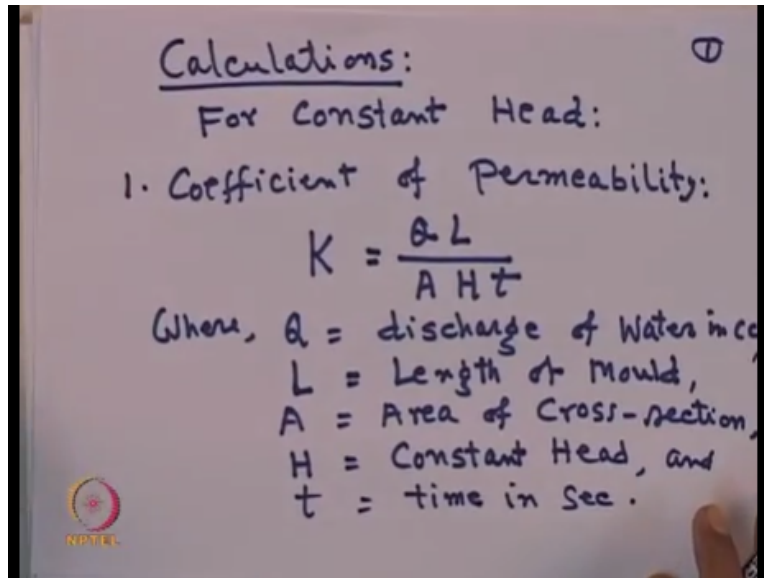 Calculations: ①
For Constant Head:
1. Coefficient of Permeability:
K = Q L
A H t
Where, Q = discharge of Water in cc
L = Length of Mould,
A = Area of Cross-section,
H = Constant Head, and
t = time in Sec.
NPTEL